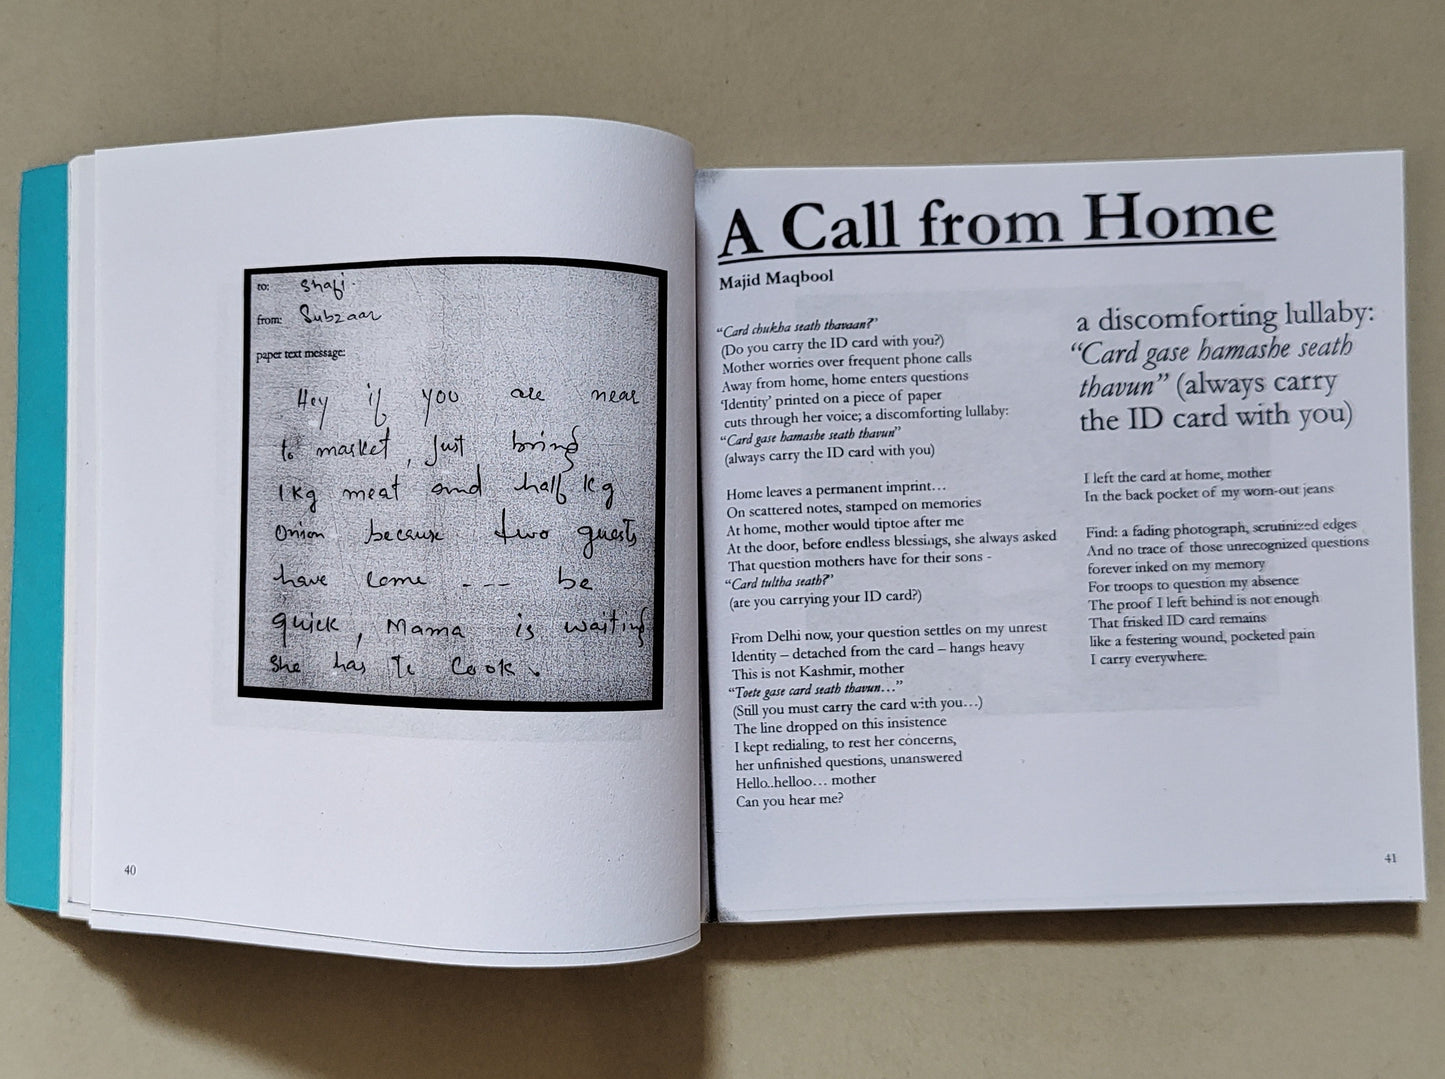 to: Shafi.
from: Subzaar
paper text message:
Hey if you are near
to market, Just bring
1 kg meat and half kg
onion because two guests
have come --- be
quick, Mama is waiting
She has to cook.
40
A Call from Home
Majid Maqbool
“Card chukha seath thavaan?”
(Do you carry the ID card with you?)
Mother worries over frequent phone calls
Away from home, home enters questions
‘Identity’ printed on a piece of paper
cuts through her voice; a discomforting lullaby:
“Card gase hamashe seath thavun”
(always carry the ID card with you)
Home leaves a permanent imprint…
On scattered notes, stamped on memories
At home, mother would tiptoe after me
At the door, before endless blessings, she always asked
That question mothers have for their sons -
“Card tultha seath?”
(are you carrying your ID card?)
From Delhi now, your question settles on my unrest
Identity – detached from the card – hangs heavy
This is not Kashmir, mother
“Toete gase card seath thavun…”
(Still you must carry the card with you…)
The line dropped on this insistence
I kept redialing, to rest her concerns,
her unfinished questions, unanswered
Hello..helloo… mother
Can you hear me?
a discomforting lullaby:
“Card gase hamashe seath
thavun” (always carry
the ID card with you)
I left the card at home, mother
In the back pocket of my worn-out jeans
Find: a fading photograph, scrutinized edges
And no trace of those unrecognized questions
forever inked on my memory
For troops to question my absence
The proof I left behind is not enough
That frisked ID card remains
like a festering wound, pocketed pain
I carry everywhere.
41